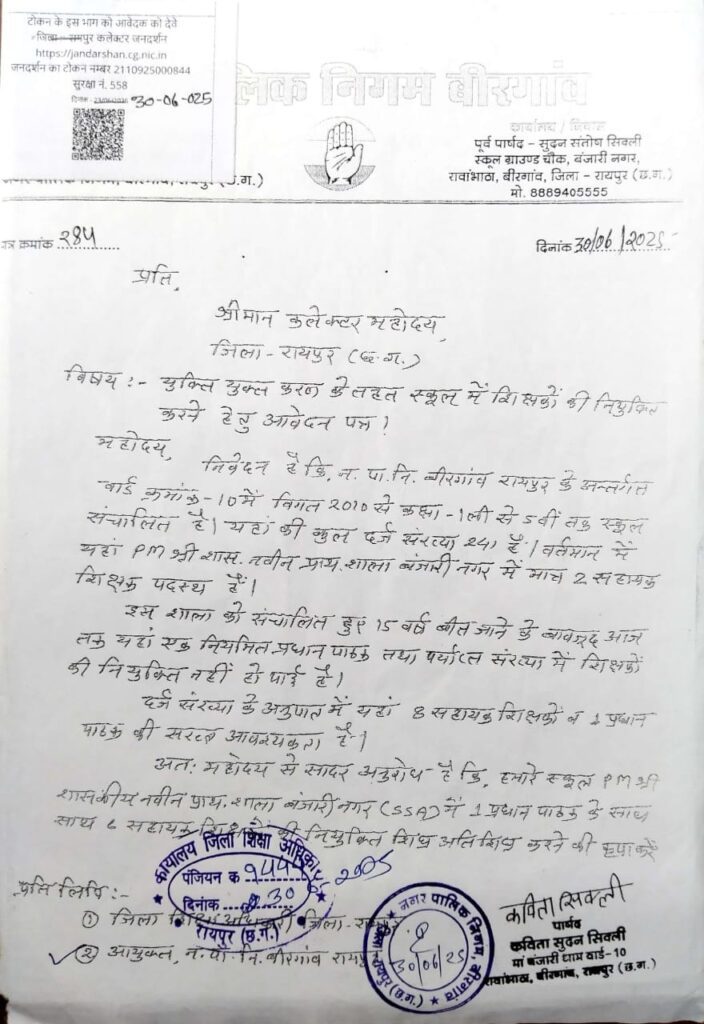 टोकन के इस भाग को आवेदक को देवे
जिला - रायपुर कलेक्टर जनदर्शन
https://jandarshan.cg.nic.in
जनदर्शन का टोकन नम्बर 2110925000844
सुरक्षा नं. 558
दिनांक - 30-06-025
पालिक निगम बीरगांव
कार्यालय / निवास
पूर्व पार्षद - सुदन संतोष सिवली
स्कूल ग्राउण्ड चौक, बंजारी नगर,
रावांभाठा, बीरगांव, जिला - रायपुर (छ.ग.)
मो. 8889405555
नगर पालिक निगम, बीरगांव, रायपुर (छ.ग.)
पत्र क्रमांक २८५
दिनांक 30/06/2025
प्रति,
श्रीमान कलेक्टर महोदय,
जिला - रायपुर (छ.ग.)
विषय :- युक्ति युक्त करण के तहत स्कूल में शिक्षकों की नियुक्ति
करने हेतु आवेदन पत्र।
महोदय,
निवेदन है कि, न. पा. नि. बीरगांव रायपुर के अन्तर्गत
वार्ड क्रमांक - 10 में विगत 2010 से कक्षा - 1ली से 5वीं तक स्कूल
संचालित है। यहां की कुल दर्ज संख्या 241 है। वर्तमान में
यहां PM श्री शास. नवीन प्राय. शाला बंजारी नगर में मात्र 2 सहायक
शिक्षक पदस्थ हैं।
इस शाला को संचालित हुए 15 वर्ष बीत जाने के बावजूद आज
तक यहां एक नियमित प्रधान पाठक तथा पर्याप्त संख्या में शिक्षकों
की नियुक्ति नहीं हो पाई है।
दर्ज संख्या के अनुपात में यहां 8 सहायक शिक्षकों व 1 प्रधान
पाठक की सख्त आवश्यकता है।
अतः महोदय से सादर अनुरोध है कि, हमारे स्कूल PM श्री
शासकीय नवीन प्राय. शाला बंजारी नगर (SSA) में 1 प्रधान पाठक के साथ
साथ 6 सहायक शिक्षकों की नियुक्ति शिघ्र अतिशिघ्र करने की कृपा करें
कार्यालय जिला शिक्षा अधिकारी
पंजियन क 944
दिनांक 30
रायपुर (छ.ग.)
प्रति लिपि :-
① जिला शिक्षा अधिकारी जिला - रायपुर
② आयुक्त, न. पा. नि. बीरगांव रायपुर
नगर पालिक निगम, बीरगांव
30/06/25
कविता सिवली
पार्षद
कविता सुदन सिवली
मां बंजारी धाम वार्ड-10
रावांभाठा, बीरगांव, रायपुर (छ.ग.)